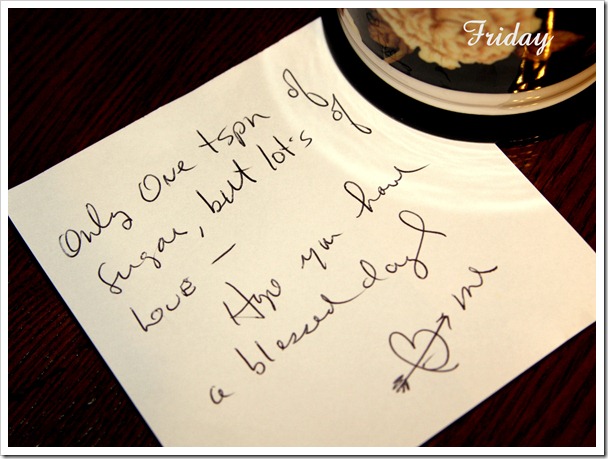 Friday
Only One tspn of
Sugar, but lot's of
Love —
Hope you have
a blessed day!
me